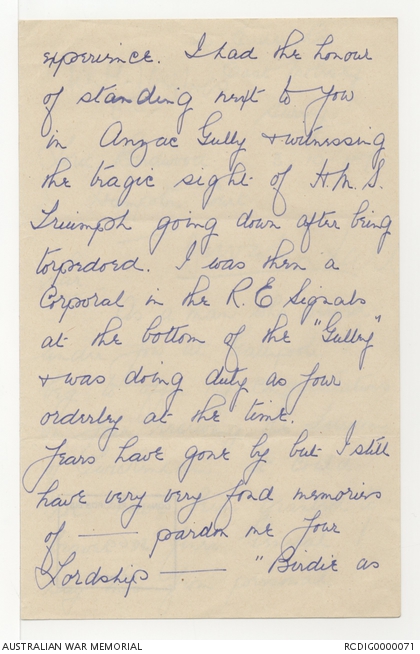 experience. I had the honour
of standing next to you
in Anzac Gully & witnessing
the tragic sight of H.M.S.
Triumph going down after being
torpedoed. I was then a
Corporal in the R.E Signals
at the bottom of the "Gulley"
& was doing duty as your
orderley at the time.
Years have gone by but I still
have very very fond memories
of —— pardon me your
Lordship —. —— "Birdie as
AUSTRALIAN WAR MEMORIAL
RCDIG0000071